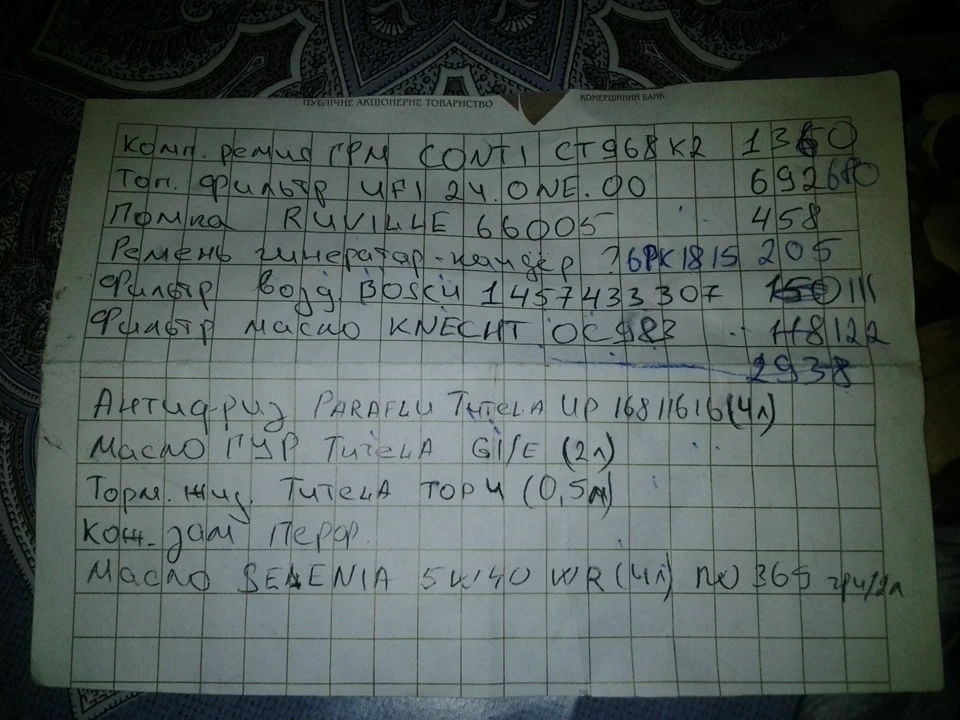 ПУБЛІЧНЕ АКЦІОНЕРНЕ ТОВАРИСТВО КОМЕРЦІЙНИЙ БАНК
Комп. ремня ГРМ CONTI CT968K2 1360
Топ. Фильтр UFI 24.ONE.00 692 680
Помка RUVILLE 66005 458
Ремень гинератар-кандер ? 6PK1815 205
Фильтр возд. BOSCH 1457433307 150 111
Фильтр масло KNECHT OC983 118 122
2938
Антифриз PARAFLU TUTELA UP 16811616 (4л)
Масло ГУР TUTELA GI/E (2л)
Торм. жид. TUTELA TOP 4 (0,5л)
Кож-зам Перфор.
Масло SELENIA 5W40 WR (4л) по 365 грн/2л